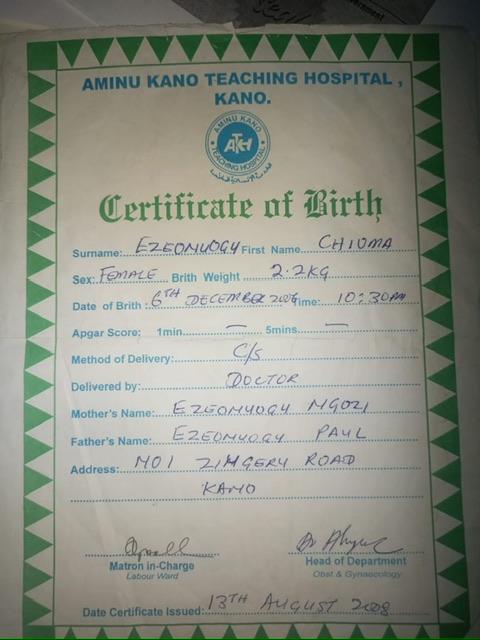 AMINU KANO TEACHING HOSPITAL,
KANO.
AMINU KANO
ATKH
TEACHING HOSPITAL
Certificate of Birth
Surname: EZEONUOGY First Name CHIOMA
Sex: FEMALE Brith Weight 2.2KG
Date of Brith: 6TH DECEMBER Time: 10:30AM
Apgar Score: 1min. — 5mins. —
Method of Delivery: C/S
Delivered by: DOCTOR
Mother's Name: EZEONUOGY NGOZI
Father's Name: EZEONUOGY PAUL
Address: NO1 ZINGERY ROAD
KANO
Matron in-Charge
Labour Ward
Head of Department
Obst & Gynaecology
Date Certificate Issued: 13TH AUGUST 2008